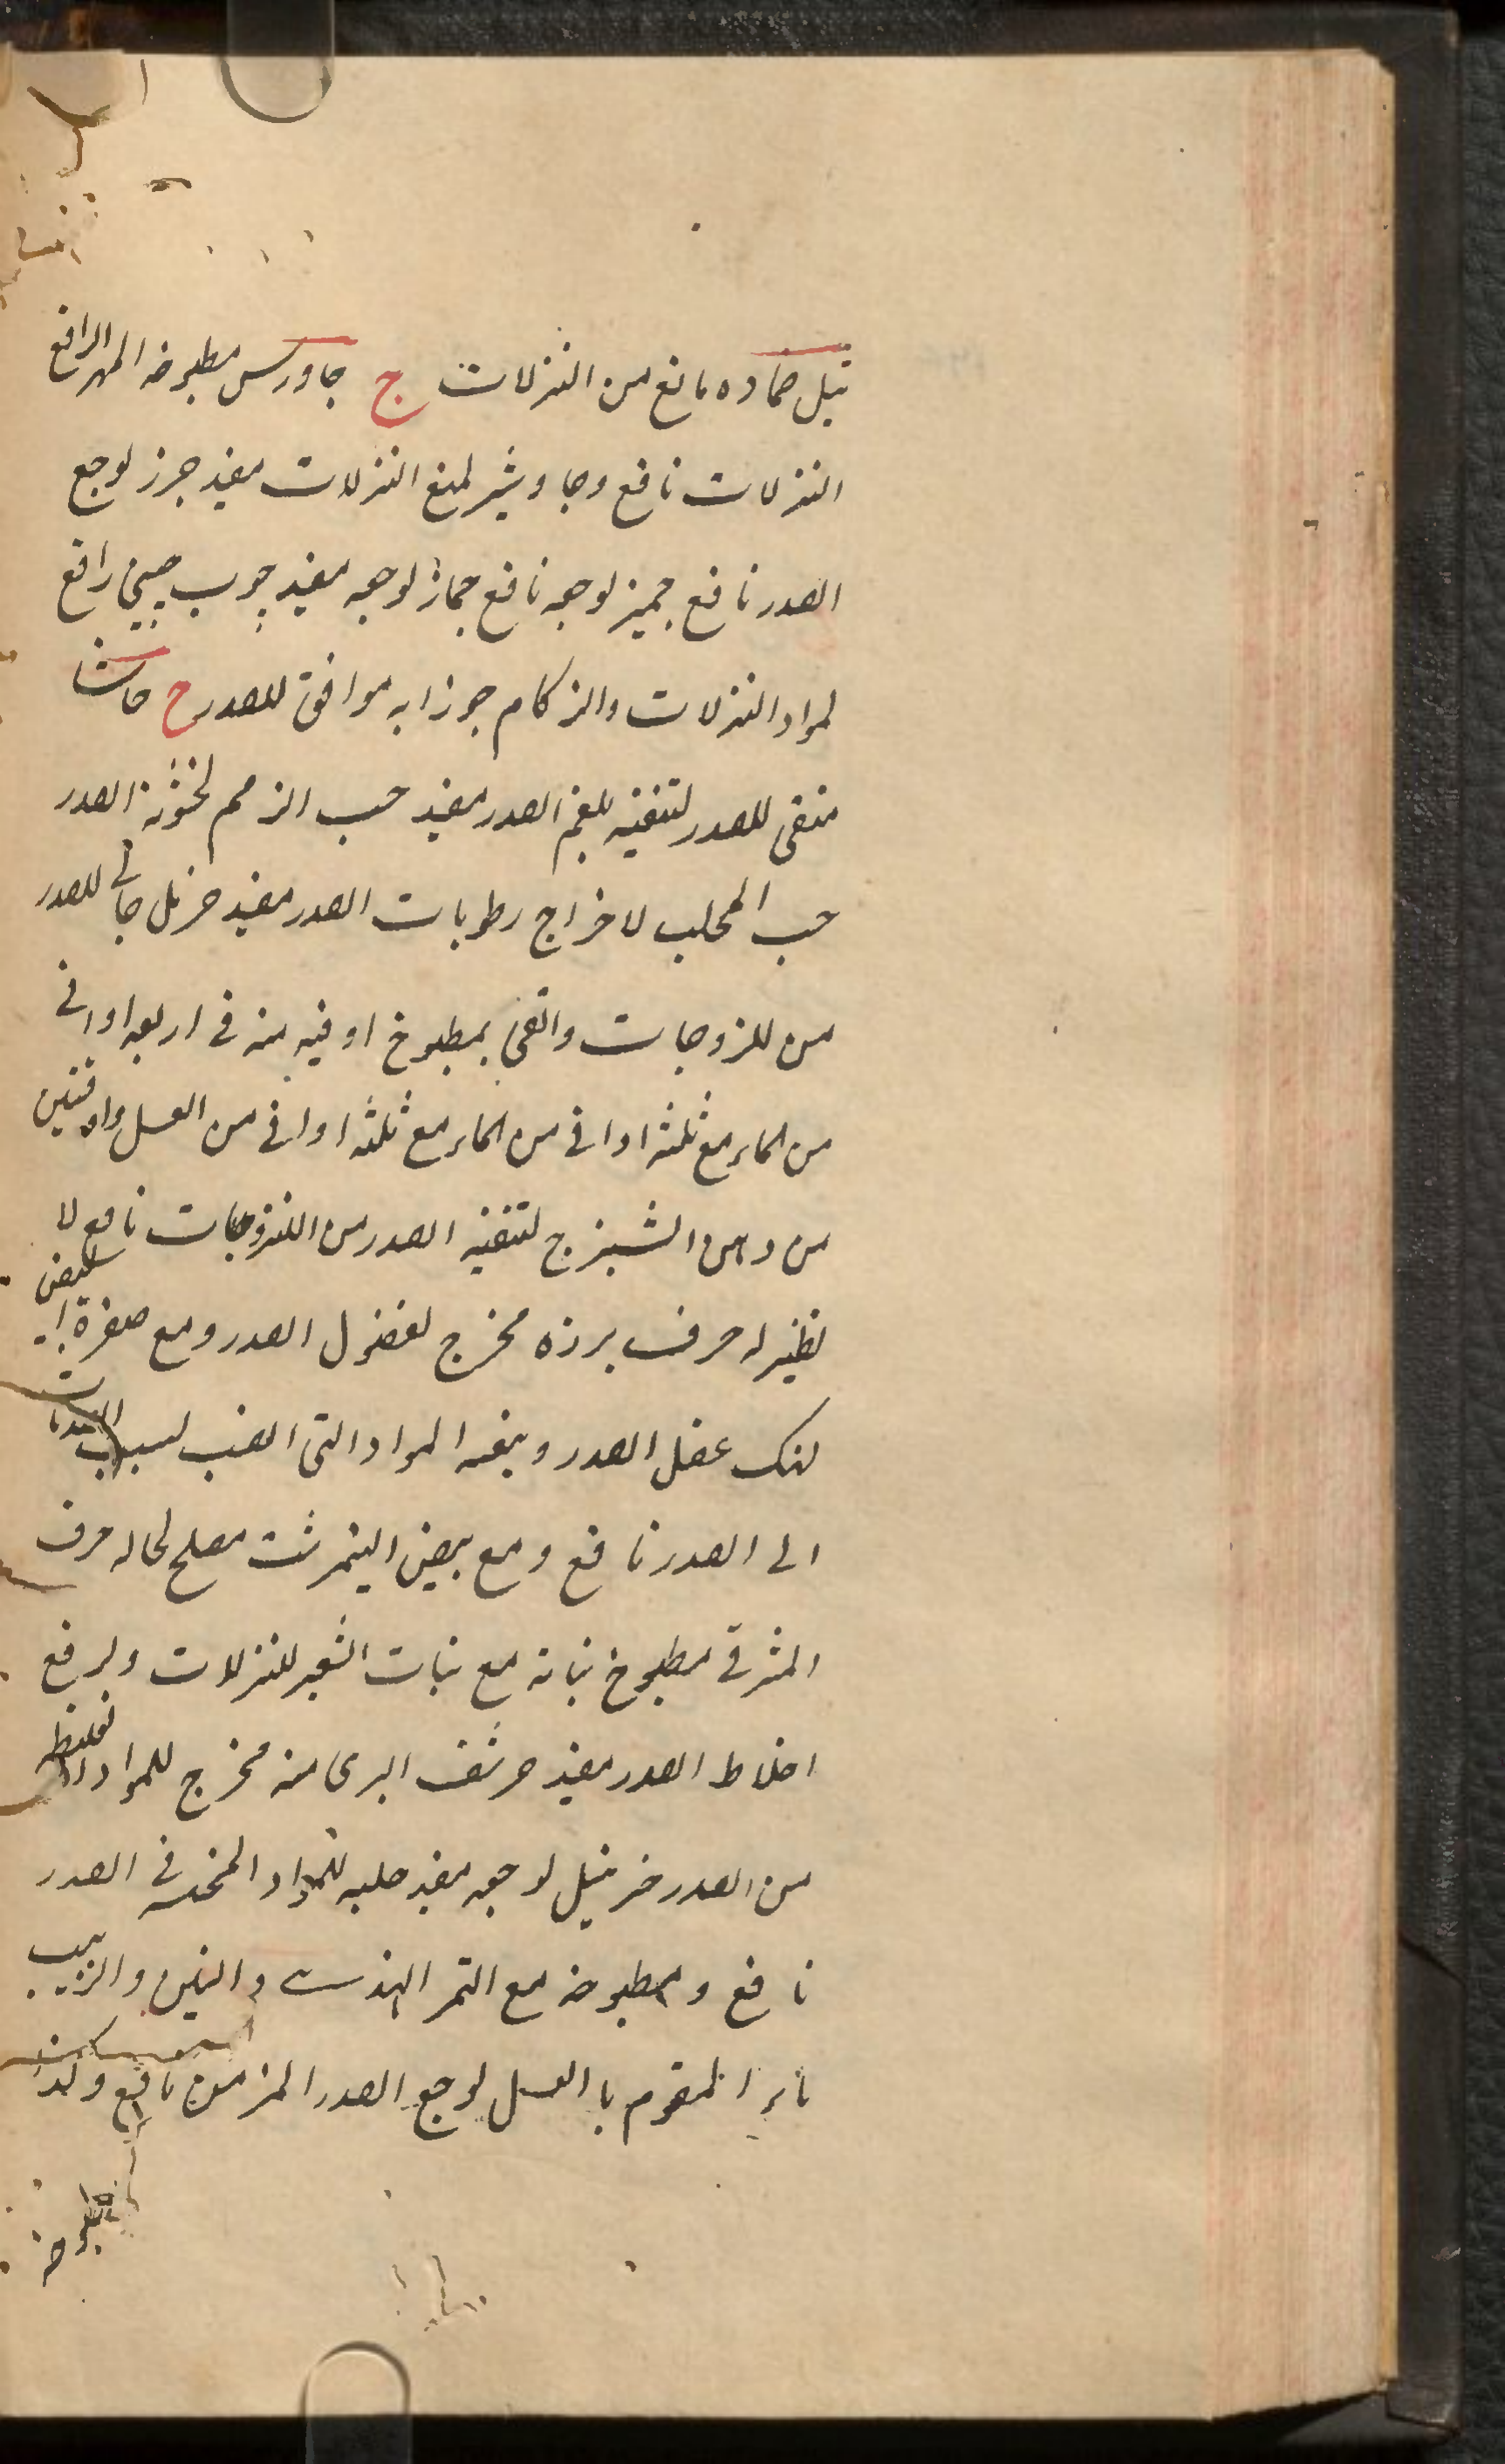 تیل ضماده مانع من النزلات ج جاورس مطبوخه المهرا لرافع
النزلات نافع وجاوشیر لمنع النزلات مفید جزر لوجع
الصدر نافع جمیز لوجعه نافع جمار لوجعه مفید چوب چینی رافع
لمواد النزلات والزکام جوزابه موافق للصدر ح حاشا
منقی للصدر لتنقیه بلغم الصدر مفید حب الزلم لخشونة الصدر
حب المحلب لاخراج رطوبات الصدر مفید حرمل جالی للصدر
من للزوجات والقی بمطبوخ اوقیه منه فی اربعه اواقی
من الماء مع ثلثه اواقی من الماء مع ثلثه اواقی من العسل واوقیتین
من دهن الشیرج لتنقیه الصدر من اللزوجات نافع لا
نظیر له حرف بزره مخرج لفضول الصدر ومع صفرة البیض
عضل الصدر المواد التی
الی الصدر نافع ومع بیض النیمرشت مصلح لحاله حرف
المشرقی مطبوخ نباته مع نبات الشعیر للنزلات ولرفع
اخلاط الصدر مفید حرشف البری منه مخرج للمواد الغلیظه
من الصدر لوجعه مفید حلبه للمواد فی الصدر
نافع ومطبوخه مع التمر الهندی والتین والزبیب
المقوم باالعسل لوجع الصدر المزمن نافع وکذا
مطبوخه